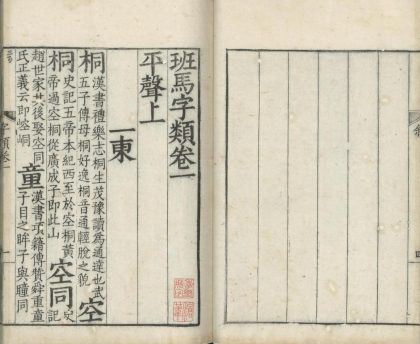 班馬字類卷一
平聲上
一東
桐漢書禮樂志桐生茂豫讀為通達也武五子傳母桐好逸桐音通輕脫之貌空
桐史記五帝本紀西至於空桐黃帝過空桐從廣成子即此山空同史記
趙世家其後娶空同氏正義云即崆峒童漢書項籍傳贊舜重童子目之眸子與瞳同
字類卷一
一
四